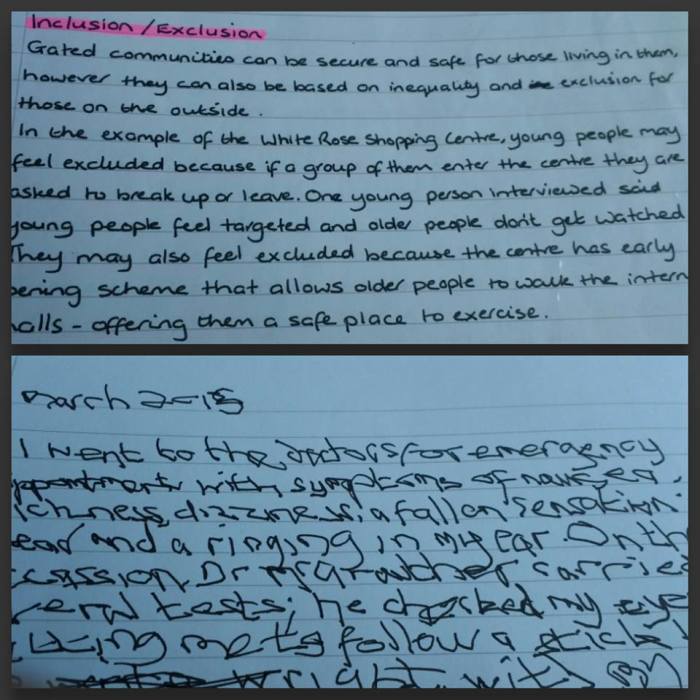 Inclusion/Exclusion
Gated communities can be secure and safe for those living in them,
however they can also be based on inequality and exclusion for
those on the outside.
In the example of the White Rose Shopping Centre, young people may
feel excluded because if a group of them enter the centre they are
asked to break up or leave. One young person interviewed said
young people feel targeted and older people don't get watched
They may also feel excluded because the centre has early
pening scheme that allows older people to walk the intern
alls - offering them a safe place to exercise.
March 2015
I went to the doctors for emergency
with symptoms of
a fallen sensation
and a ringing in my ear. On th
Dr carried
tests; he checked my eye
follow a stick
right with